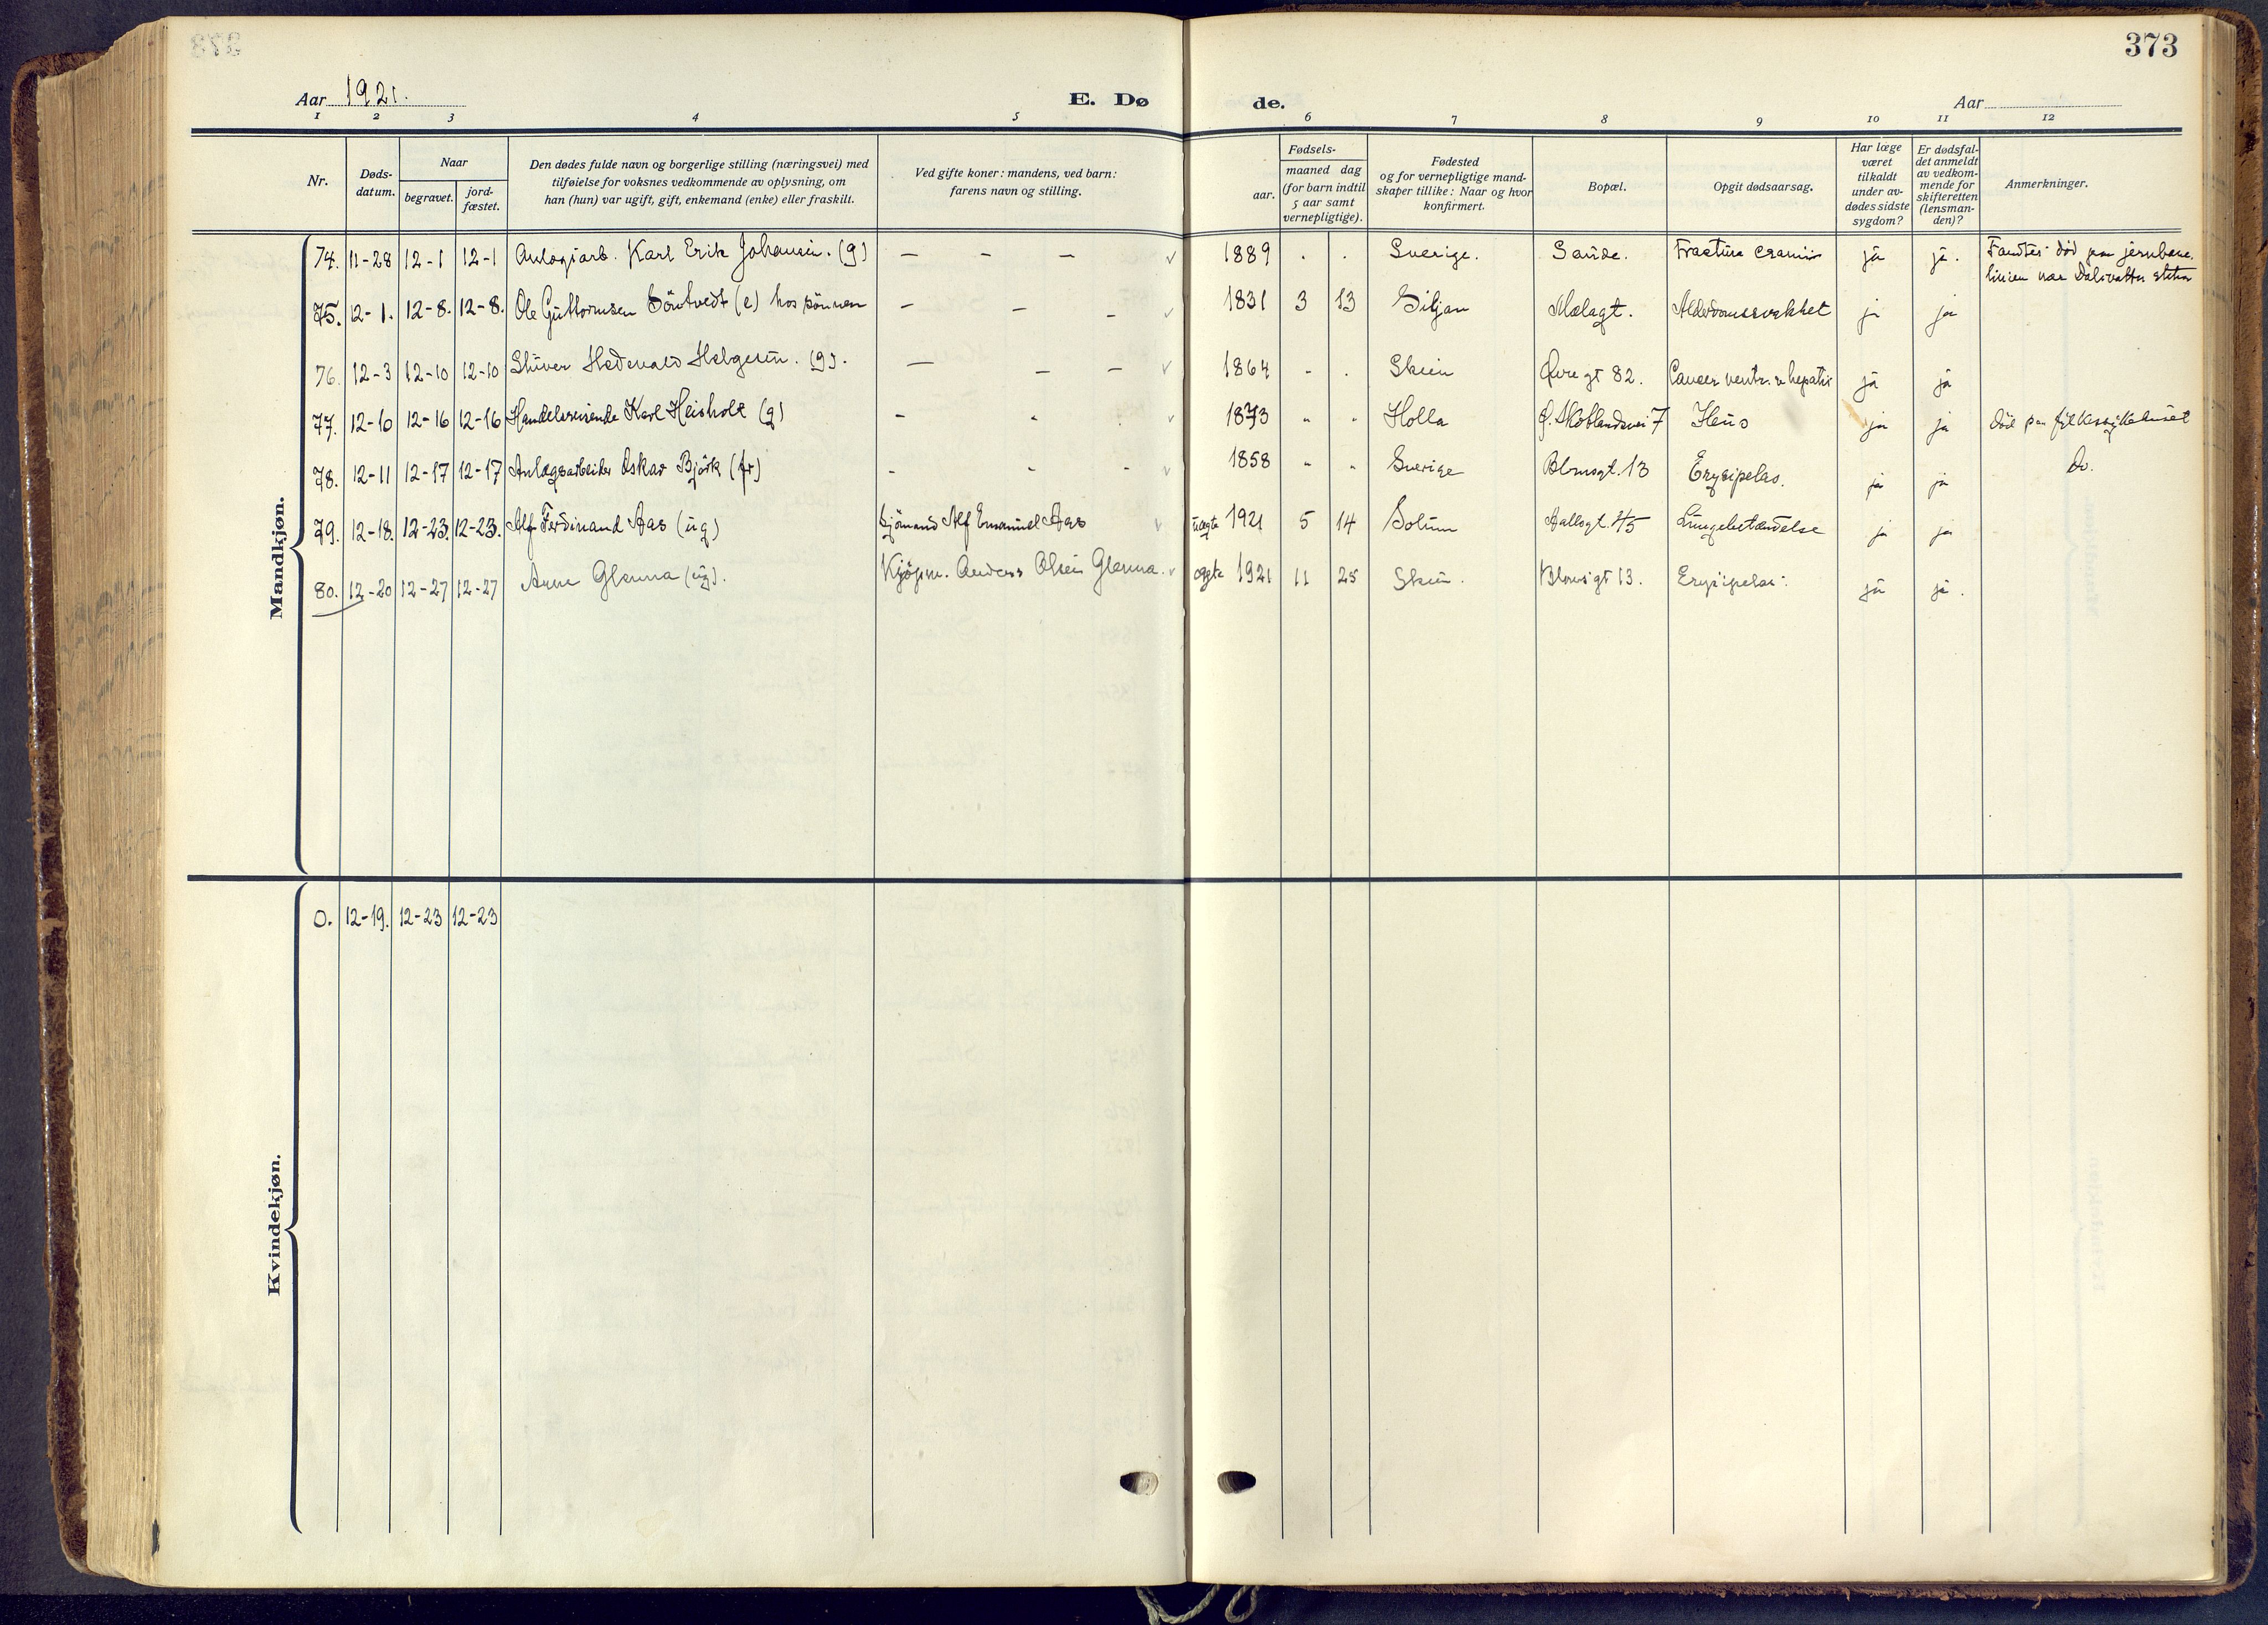 373
Aar 1921.
E. Dø de.
Aar
1 2 3 4 5 6 7 8 9 10 11 12
Nr.
Dødsdatum.
Naar
begravet.
jordfæstet.
Den dødes fulde navn og borgerlige stilling (næringsvei) med
tilføielse for voksnes vedkommende av oplysning, om
han (hun) var ugift, gift, enkemand (enke) eller fraskilt.
Ved gifte koner: mandens, ved barn:
farens navn og stilling.
Fødsels-
aar.
maaned dag
(for barn indtil
5 aar samt
vernepligtige).
Fødested
og for vernepligtige mand-
skaper tillike: Naar og hvor
konfirmert.
Bopæl.
Opgit dødsaarsag.
Har læge
været
tilkaldt
under av-
dødes sidste
sygdom?
Er dødsfal-
det anmeldt
av vedkom-
mende for
skifteretten
(lensman-
den)?
Anmerkninger.
Mandkjøn.
74. 11-28 12-1 12-1 Anlægsarb. Karl Erik Johansen. (g) — - — 1889 . . Sverige. Sande. Fractura cranii ja ja. Fandtes død paa jernbane
linien nær Dalsvatn station
75. 12-1. 12-8. 12-8. Ole Guttormsen (e) hos sønnen — - - 1831 3 13 Siljan Mælagt. Alderdomssvakhet ja ja
76. 12-3 12-10 12-10 Helgesen. (g). — — — 1864 - . Skien Øvregt 82. Cancer ventr. & hepatis ja ja
77. 12-10 12-16 12-16 Handelsreisende Karl Heisholt (g) - - 1873 " " Holla 7 ja ja død paa fylkessykehuset
78. 12-11 12-17 12-17 Anlægsarbeider Oskar Björk (fr) - - - 1858 " " Sverige Blomsgt. 13 Erysipelas. ja ja Do.
79. 12-18. 12-23. 12-23. Alf Ferdinand Aas (ug) Sjömand Alf Emanuel Aas uægte 1921 5 14 Solum Aallsgt. Lungebetændelse ja ja
80. 12-20 12-27 12-27 Arne Glenna (ug). Kjøpm. Anders Olsen Glenna. ægte 1921 11 25 Skien. Blomsgt 13. Erysipelas. ja ja.
Kvindekjøn.
0. 12-19. 12-23 12-23